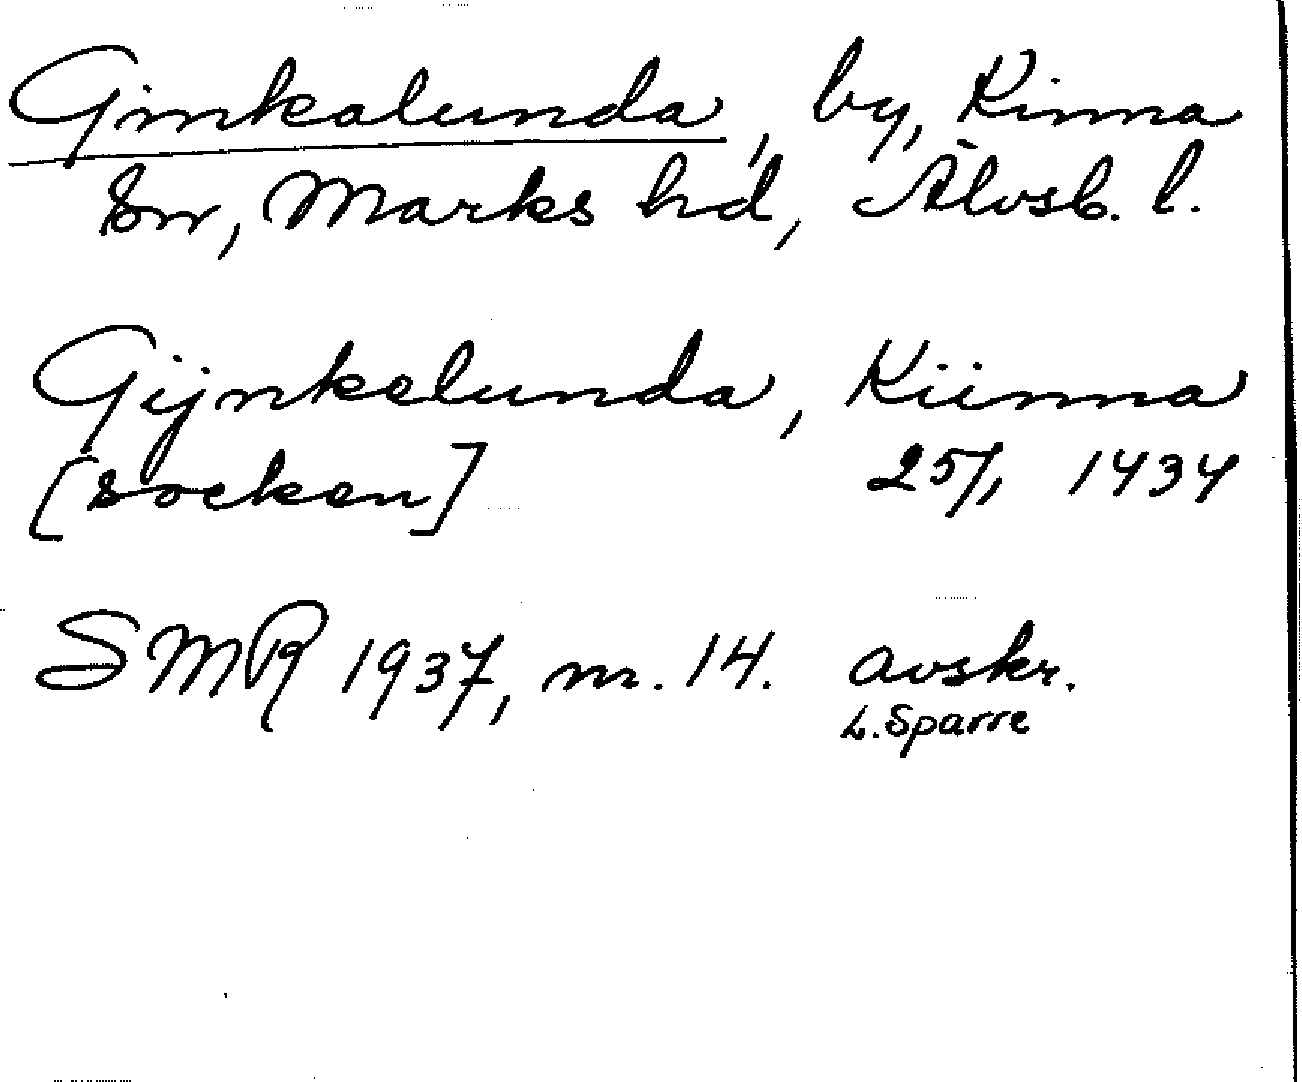 Ginkalunda, by, Kinna
sn, Marks hd, Älvsb. l.
Gijnkelunda, Kiinna
[socken] 25/1 1434
SMR 1937, nr. 14. avskr.
L. Sparre